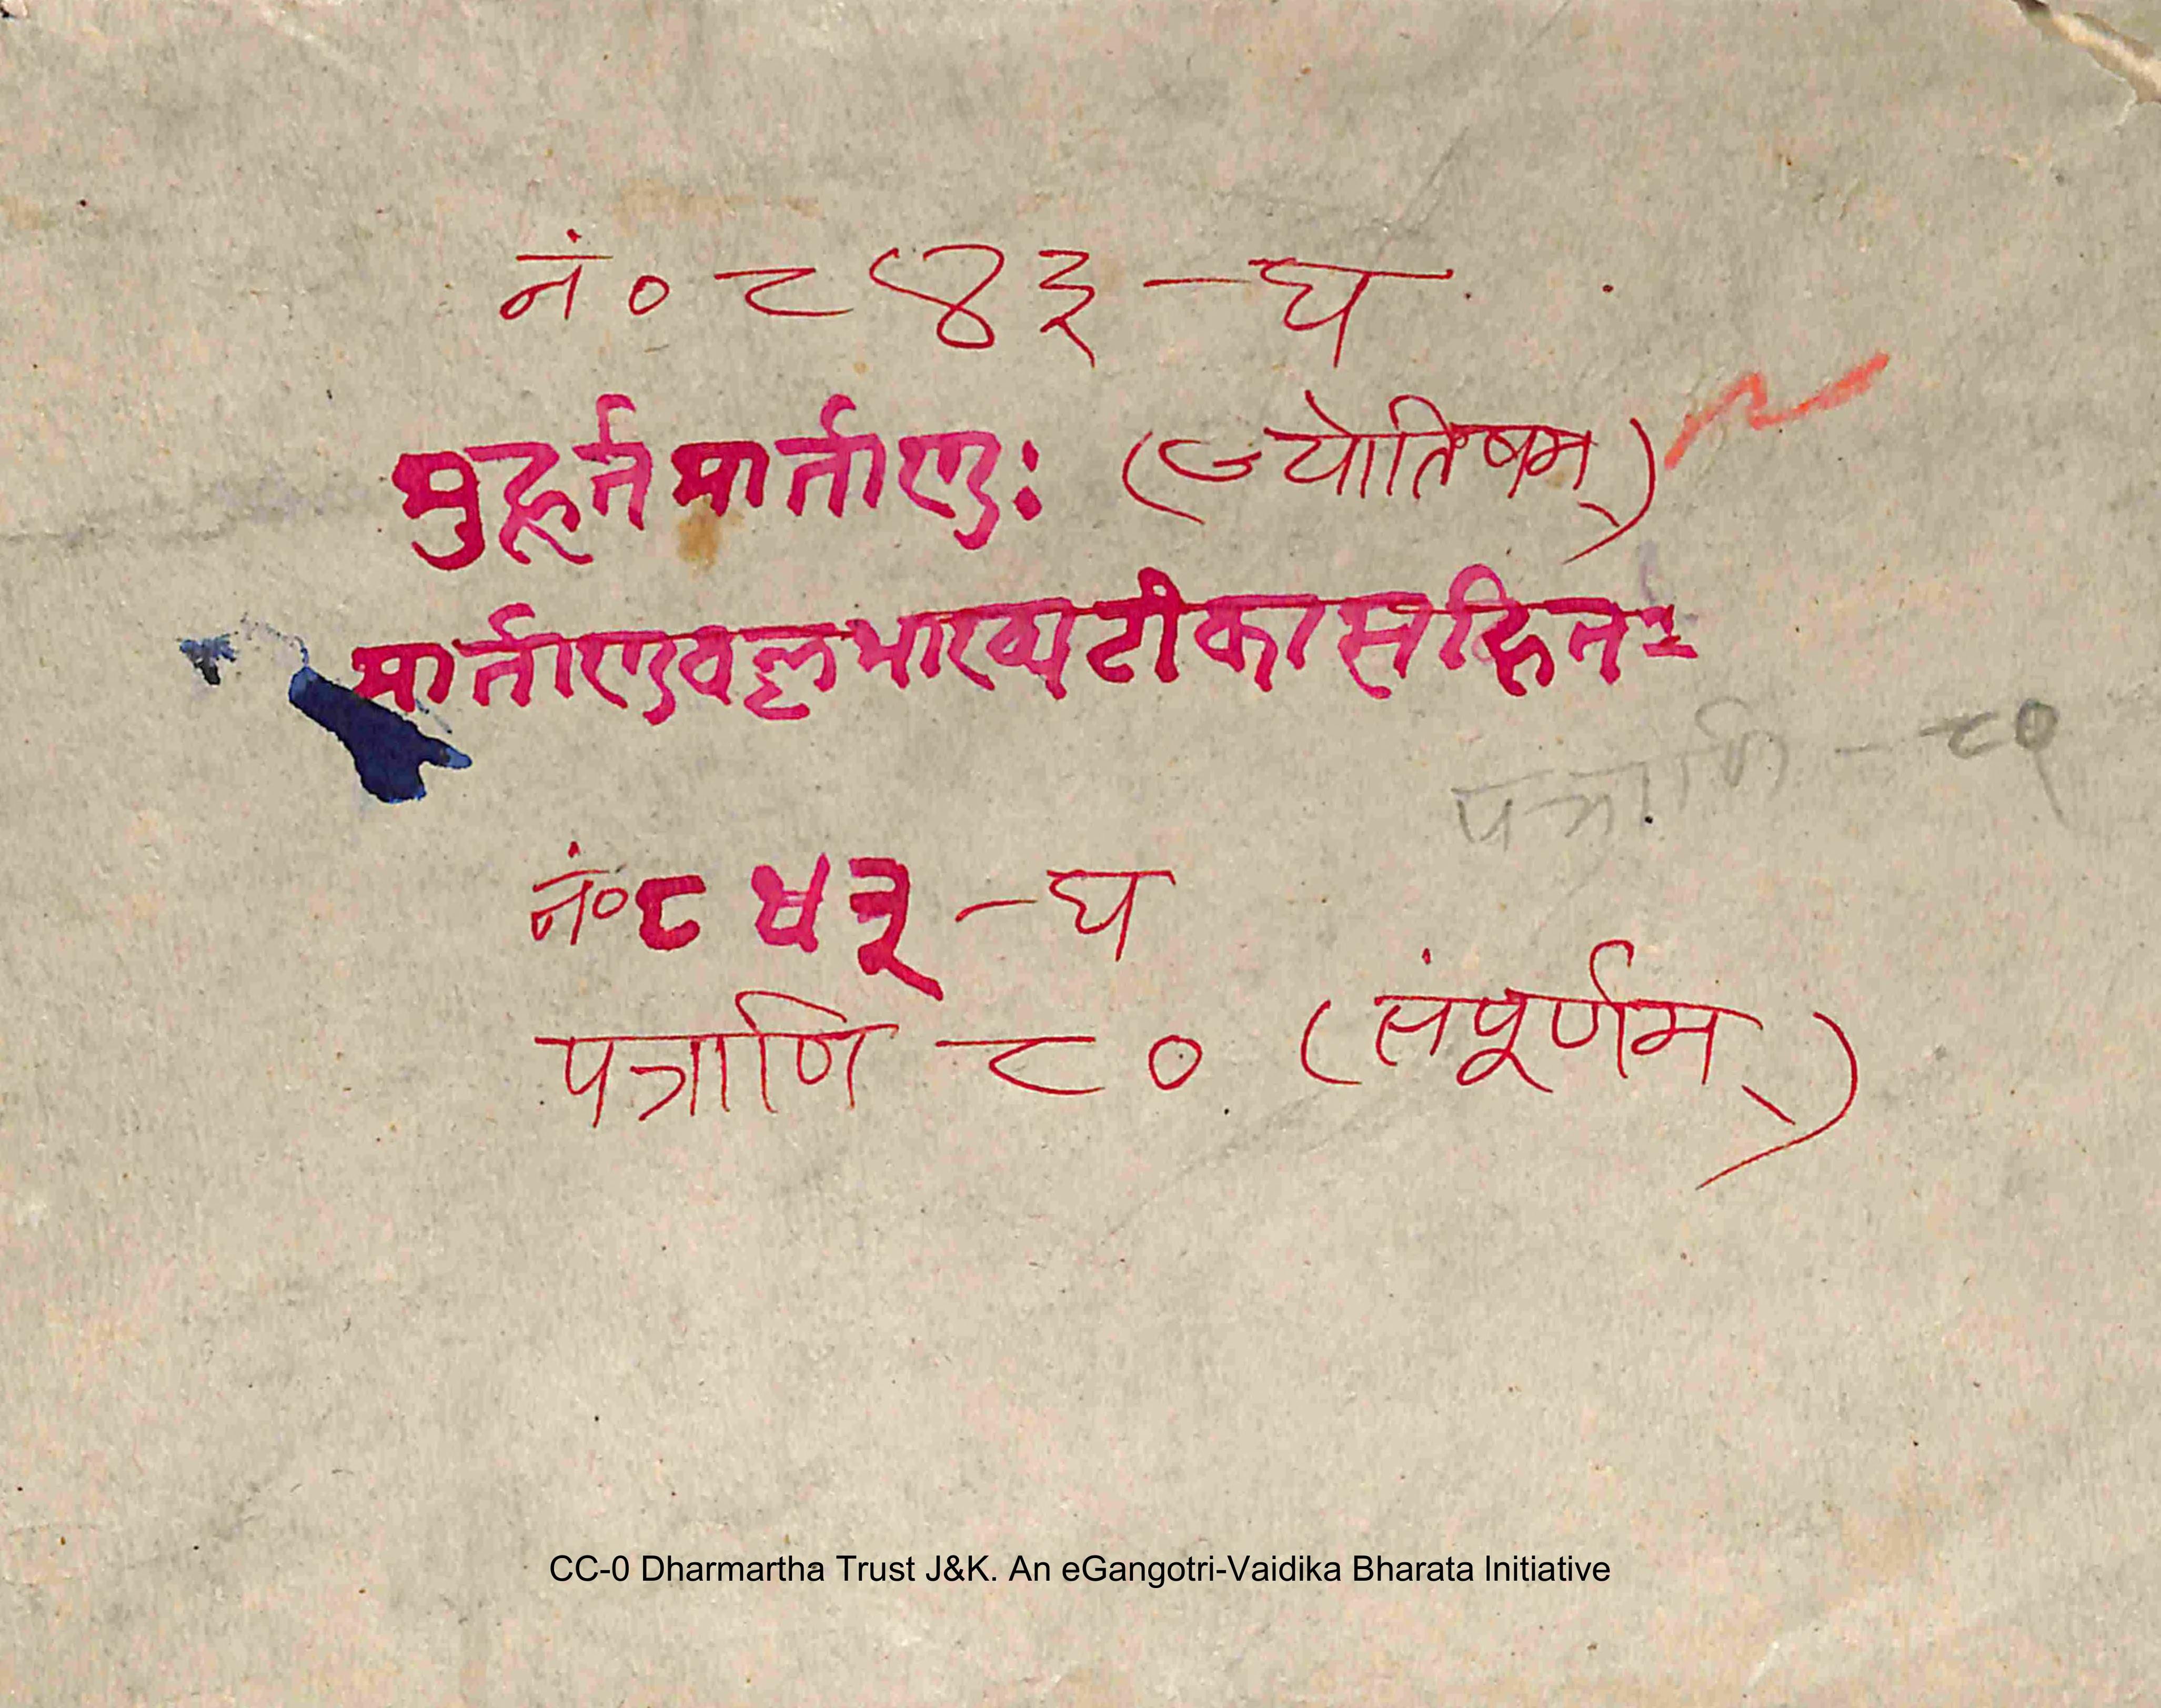 नं० ८४३ - घ
मुहूर्तमार्ताण्डः (ज्योतिषम्)
मार्ताण्डवल्लभाख्यटीकासहितः
पत्राणि - ८१
नं० ८५३ - घ
पत्राणि ८० (संपूर्णम्)
CC-0 Dharmartha Trust J&K. An eGangotri-Vaidika Bharata Initiative